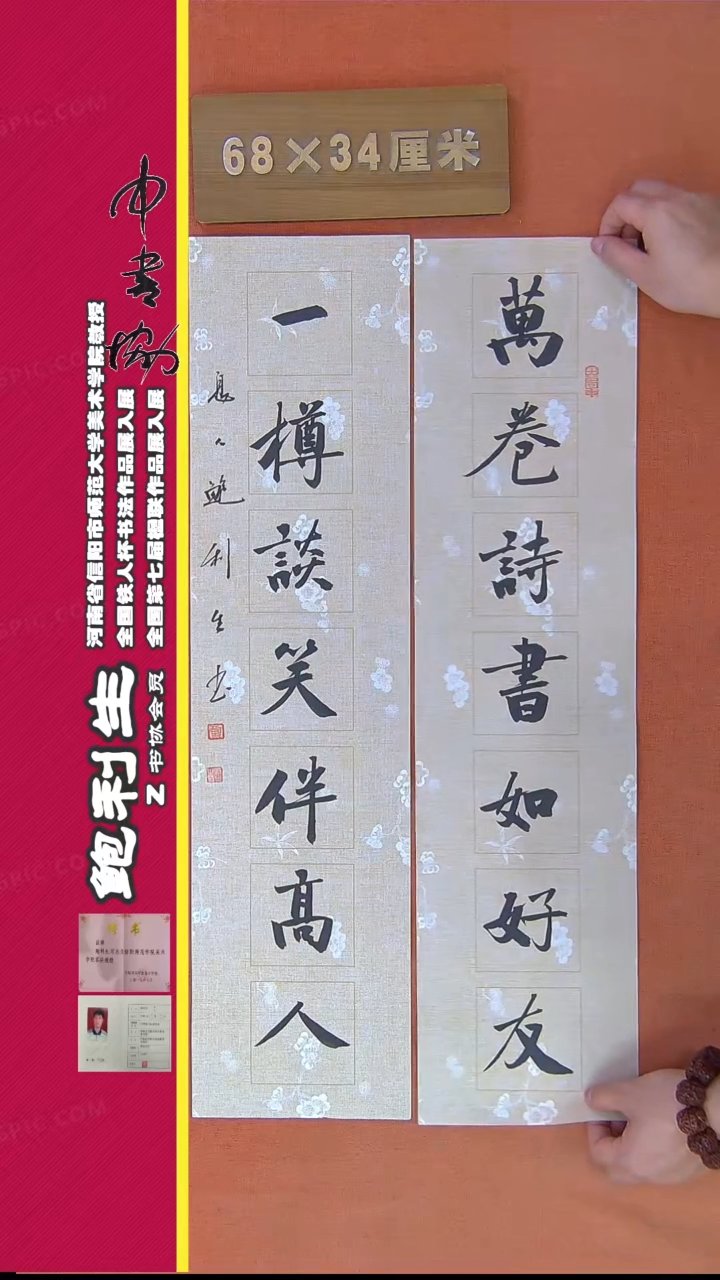 68×34厘米
萬卷詩書如好友
一樽談笑伴高人
鮑利生书
中書协
河南省信阳市师范大学美术学院教授
全国铁人杯书法作品展入展
全国第七届楹联作品展入展
鲍利生
Z 书协会员
聘书